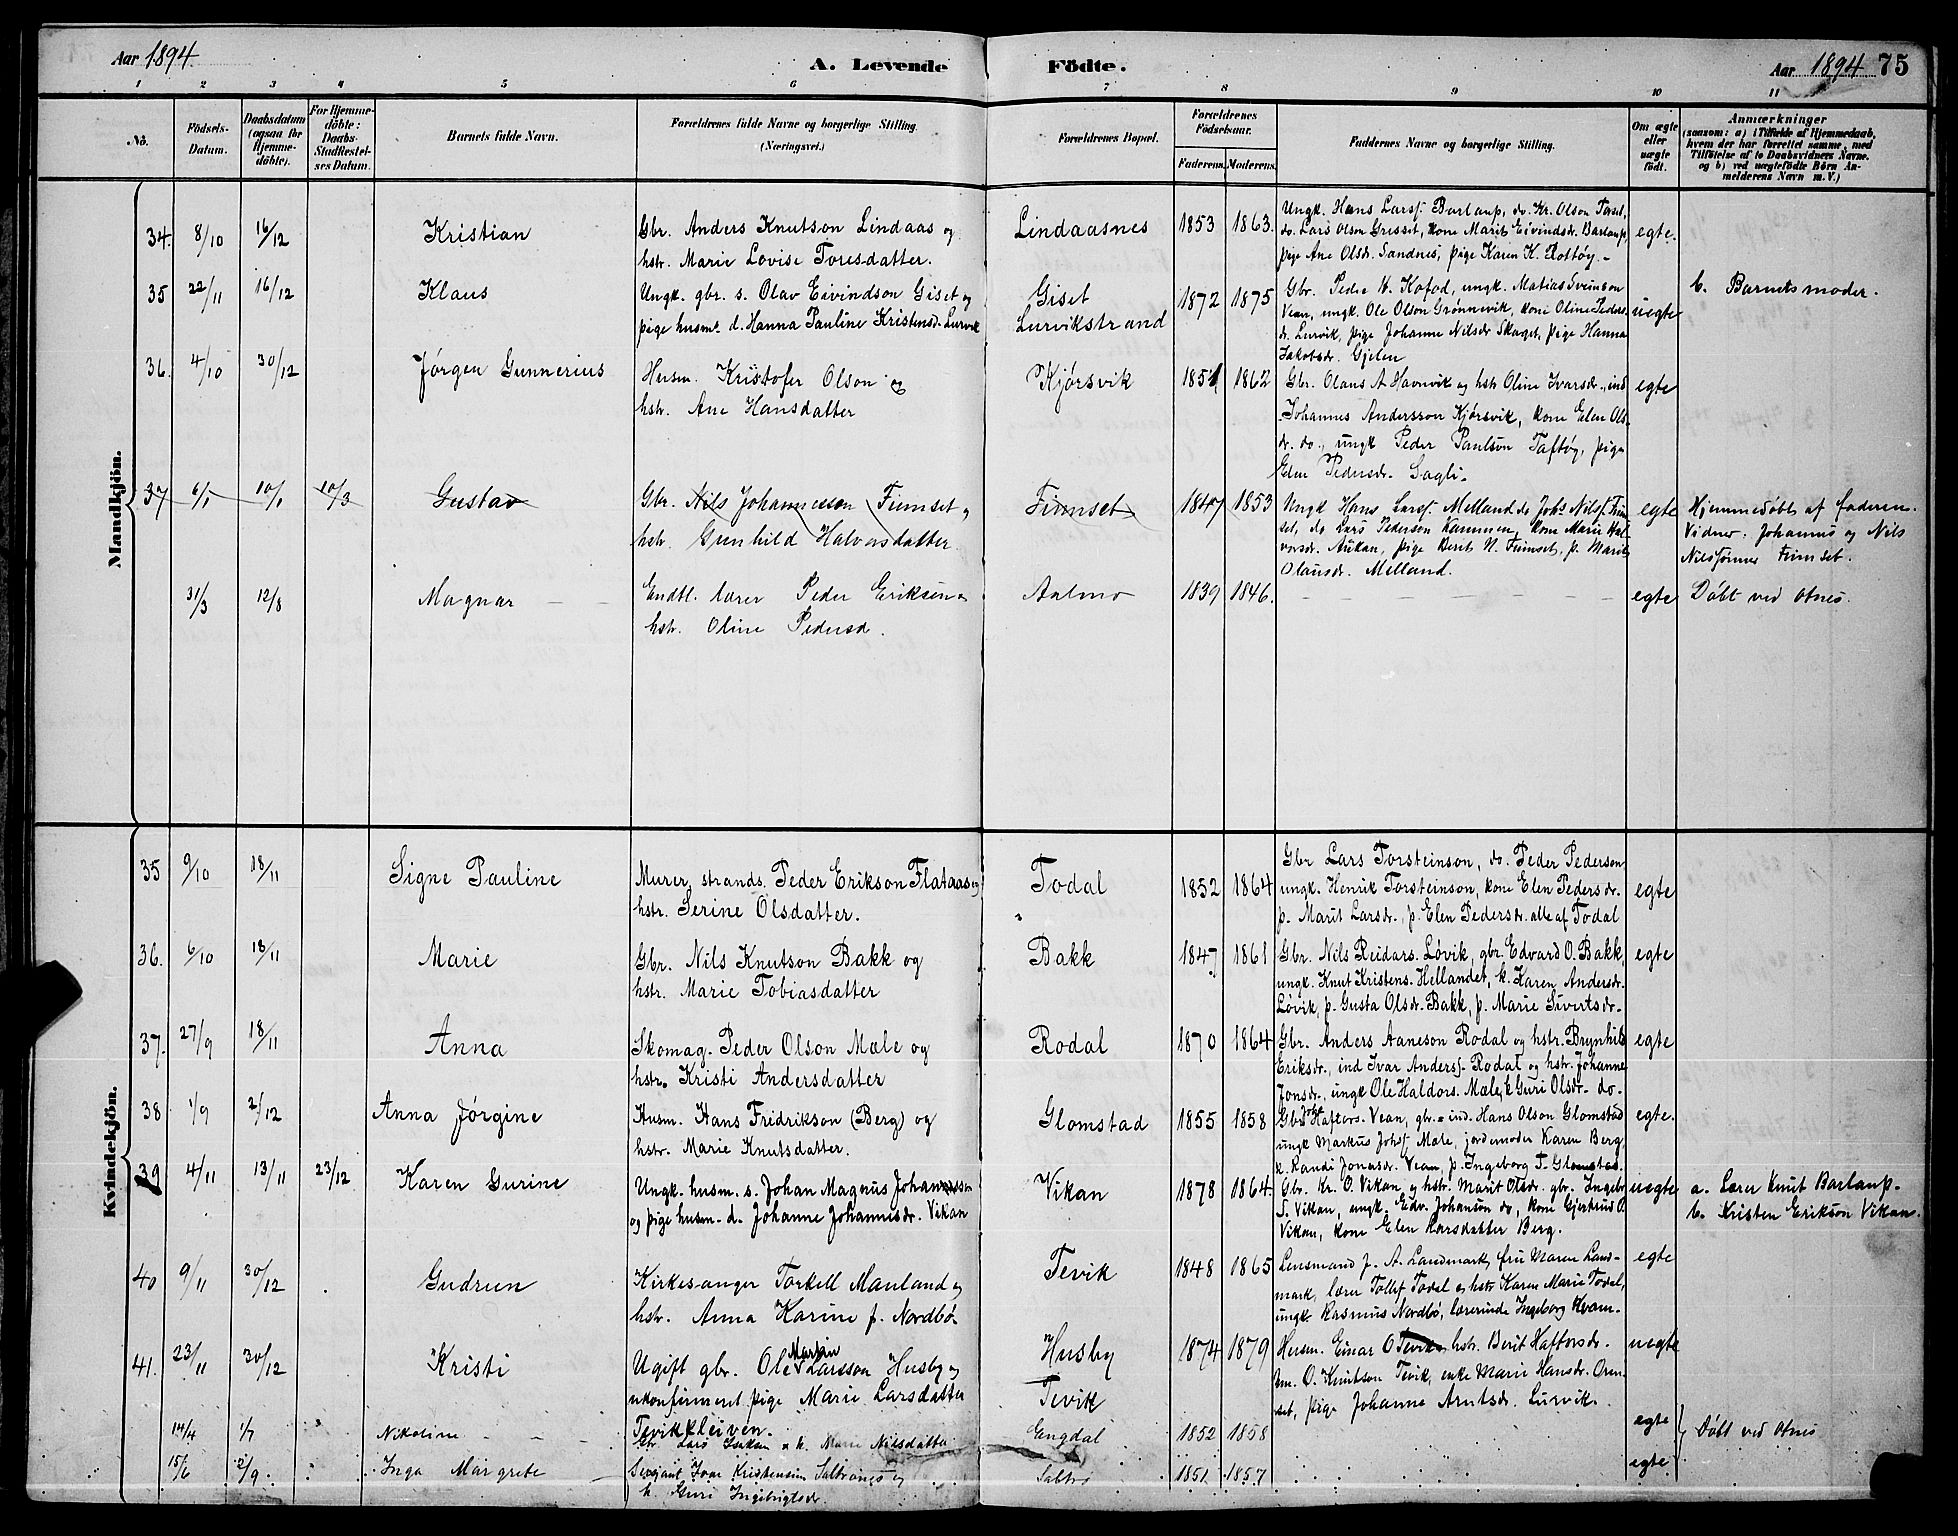 Aar 1894.
A. Levende Födte.
Aar 1894 75
1 2 3 4 5 6 7 8 9 10 11
No.
Födsels-Datum.
Daabsdatum (ogsaa for Hjemme-döbte).
For Hjemme-döbte: Daabs-Stadfæstel-ses Datum.
Barnets fulde Navn.
Forældrenes fulde Navne og borgerlige Stilling.
(Næringsvei.)
Forældrenes Bopæl.
Forældrenes Födselsaar.
Faderens. Moderens.
Faddernes Navne og borgerlige Stilling.
Om ægte eller uægte födt.
Anmærkninger
(saasom: a) i Tilfælde af Hjemmedaab,
hvem der har forrettet samme, med
Tilföielse af to Daabsvidners Navne,
og b) ved uægtefödte Börn An-
melderens Navn m. V.)
Mandkjön.
34. 8/10 16/12 Kristian
Gbr. Anders Knutson Lindaas og
hstr. Marie Lovise Toresdatter.
Lindaasnes 1853 1863.
Ungk. Hans Larsf. Barlaup, do. Kr. Olson Torset,
do. Lars Olson Grisset, kone Marit Eivindsdr. Barlaup,
pige Ane Olsdr. Sandnes, pige Karen K. Rottøy.
egte.
35 22/11 16/12 Klaus
Ungk. gbr. s. Olav Eivindson Giset og
pige husm. d. Hanna Pauline Kristensd. Lurvik
Giset
Lurvikstrand
1872 1875
Gbr. Peder M. Hofod, ungk. Matias Sveinson
Vean, ungk. Ole Olson Grønnevik, kone Oline Peders-
dr. Lurvik, pige Johanne Nilsdr. Skaget, pige Hanna
Jakobsdr. Gjelen
uegte
b. Barnets moder.
36. 4/10 30/12 Jørgen Gunnerius
Husm. Kristofer Olson og
hstr. Ane Hansdatter
Kjørsvik 1851 1862
Gbr. Olaus A Havnvik og hstr Oline Ivarsdr., ind
Johannes Andersson Kjørsvik, kone Elen Ols-
dr. do., ungk Peder Paulson Taftøy, pige
Elen Pedersdr. Sagli.
egte
37 6/1 10/1 10/3 Gustav
Gbr. Nils Johannesson Fiumset og
hstr. Gunhild Halvorsdatter.
Fiumset 1847 1853
Ungk Hans Larsf. Melland, do Johs Nilsf. Fium-
set, do Lars Pederson Kammen, kone Marie Hal-
vorsdr. Aukan, pige Berit N. Fiumset, p. Marit
Olausdr. Melland.
egte
Hjemmedøbt af faderen.
Vidner: Johannes og Nils
Nilssønner Fiumset.
31/3 12/8 Magnar
Endtl. lærer Peder Eriksen og
hstr. Oline Pedersd.
Aalmo 1839 1846.
egte
Døbt ved Otnes.
Kvindekjön.
35 9/10 18/11 Signe Pauline
Murer, strands. Peder Erikson Flataas og
hstr. Serine Olsdatter.
Todal 1852 1864
Gbr Lars Torsteinson, do. Peder Pederson
ungk. Henrik Torsteinson, kone Elen Pedersdr.
p. Marit Larsdr., p. Elen Pedersdr. alle af Todal
egte
36. 6/10 18/11 Marie
Gbr. Nils Knutson Bakk og
hstr. Marie Tobiasdatter
Bakk 1847 1861
Gbr. Nils Reidars. Løvik, gbr. Edvard O. Bakk,
ungk. Knut Kristens. Hellandet, k. Karen Andersdr.
Løvik, p. Gusta Olsdr. Bakk, p. Marie Sivertsdr.
egte
37. 27/9 18/11 Anna
Skomag. Peder Olson Mæle og
hstr. Kristi Andersdatter
Rodal 1870 1864
Gbr. Anders Aaneson Rodal og hstr. Brynhild
Eriksdr., ind Ivar Andersf. Rodal og hstr. Johanne
Jonsdr., ungk Ole Haldors. Mæle, k Guri Olsdr. do.
egte
38 1/9 2/12 Anna Jørgine
Husm. Hans Fridrikson (Berg) og
hstr. Marie Knutsdatter.
Glomstad 1855 1858
Haftors. Vean, gbr. ind. Hans Olson Glomstad
ungk Markus Johsf Mæle, jordemoder Karen Berg,
k. Randi Jonasdr. Vean, p. Ingeborg T. Glomstad.
egte.
39 4/11 13/11 23/12 Karen Gurine
Ungk. husm. s. Johan Magnus Johannesson
og pige husm. d. Johanne Johannesdr. Vikan
Vikan 1878 1864.
Gbr. Kr. O. Vikan og hstr. Marit Olsdr. gbr. Ingebr.
S. Vikan, ungk. Edv. Johanson do, kone Gjertrud O.
Vikan, kone Elen Larsdatter Berg.
uegte
a. Lærer Knut Barlaup.
b. Kristen Erikson Vikan.
40 9/11 30/12 Gudrun
Kirkesanger Torkell Mauland og
hstr. Anna Karine f. Nordbø
Tevik 1848 1865
Lensmand J. A. Landmark, fru Maren Land-
mark, lærer Tollef Todal og hstr Karen Marie Todal,
ungk. Rasmus Nordbø, lærerinde Ingeborg Kvam.
egte
41. 23/11 30/12 Kristi
Ugift gbr. Ole Marian Larsson Husby og
ukonfirmeret pige Marie Larsdatter
Tevikkleiven.
Husby
Tevik
1874 1879
Husm. Einar O Tevik, hstr. Berit Haftorsdr.
O. Knutson Tevik, enke Marie Hansdr. Oren-
set, pige Johanne Arntsdr. Lurvik.
uegte
14/4 1/7 Nikoline
Lars Isaksen k. Marie Nilsdatter
Engdal 1852 1858
egte
15/6 2/9 Inga Margrete
Sergiant Ivar Kristensen Saltrønes og
h. Guri Ingebrigtsdr.
Saltrø 1851. 1857
egte
Døbt ved Otnes